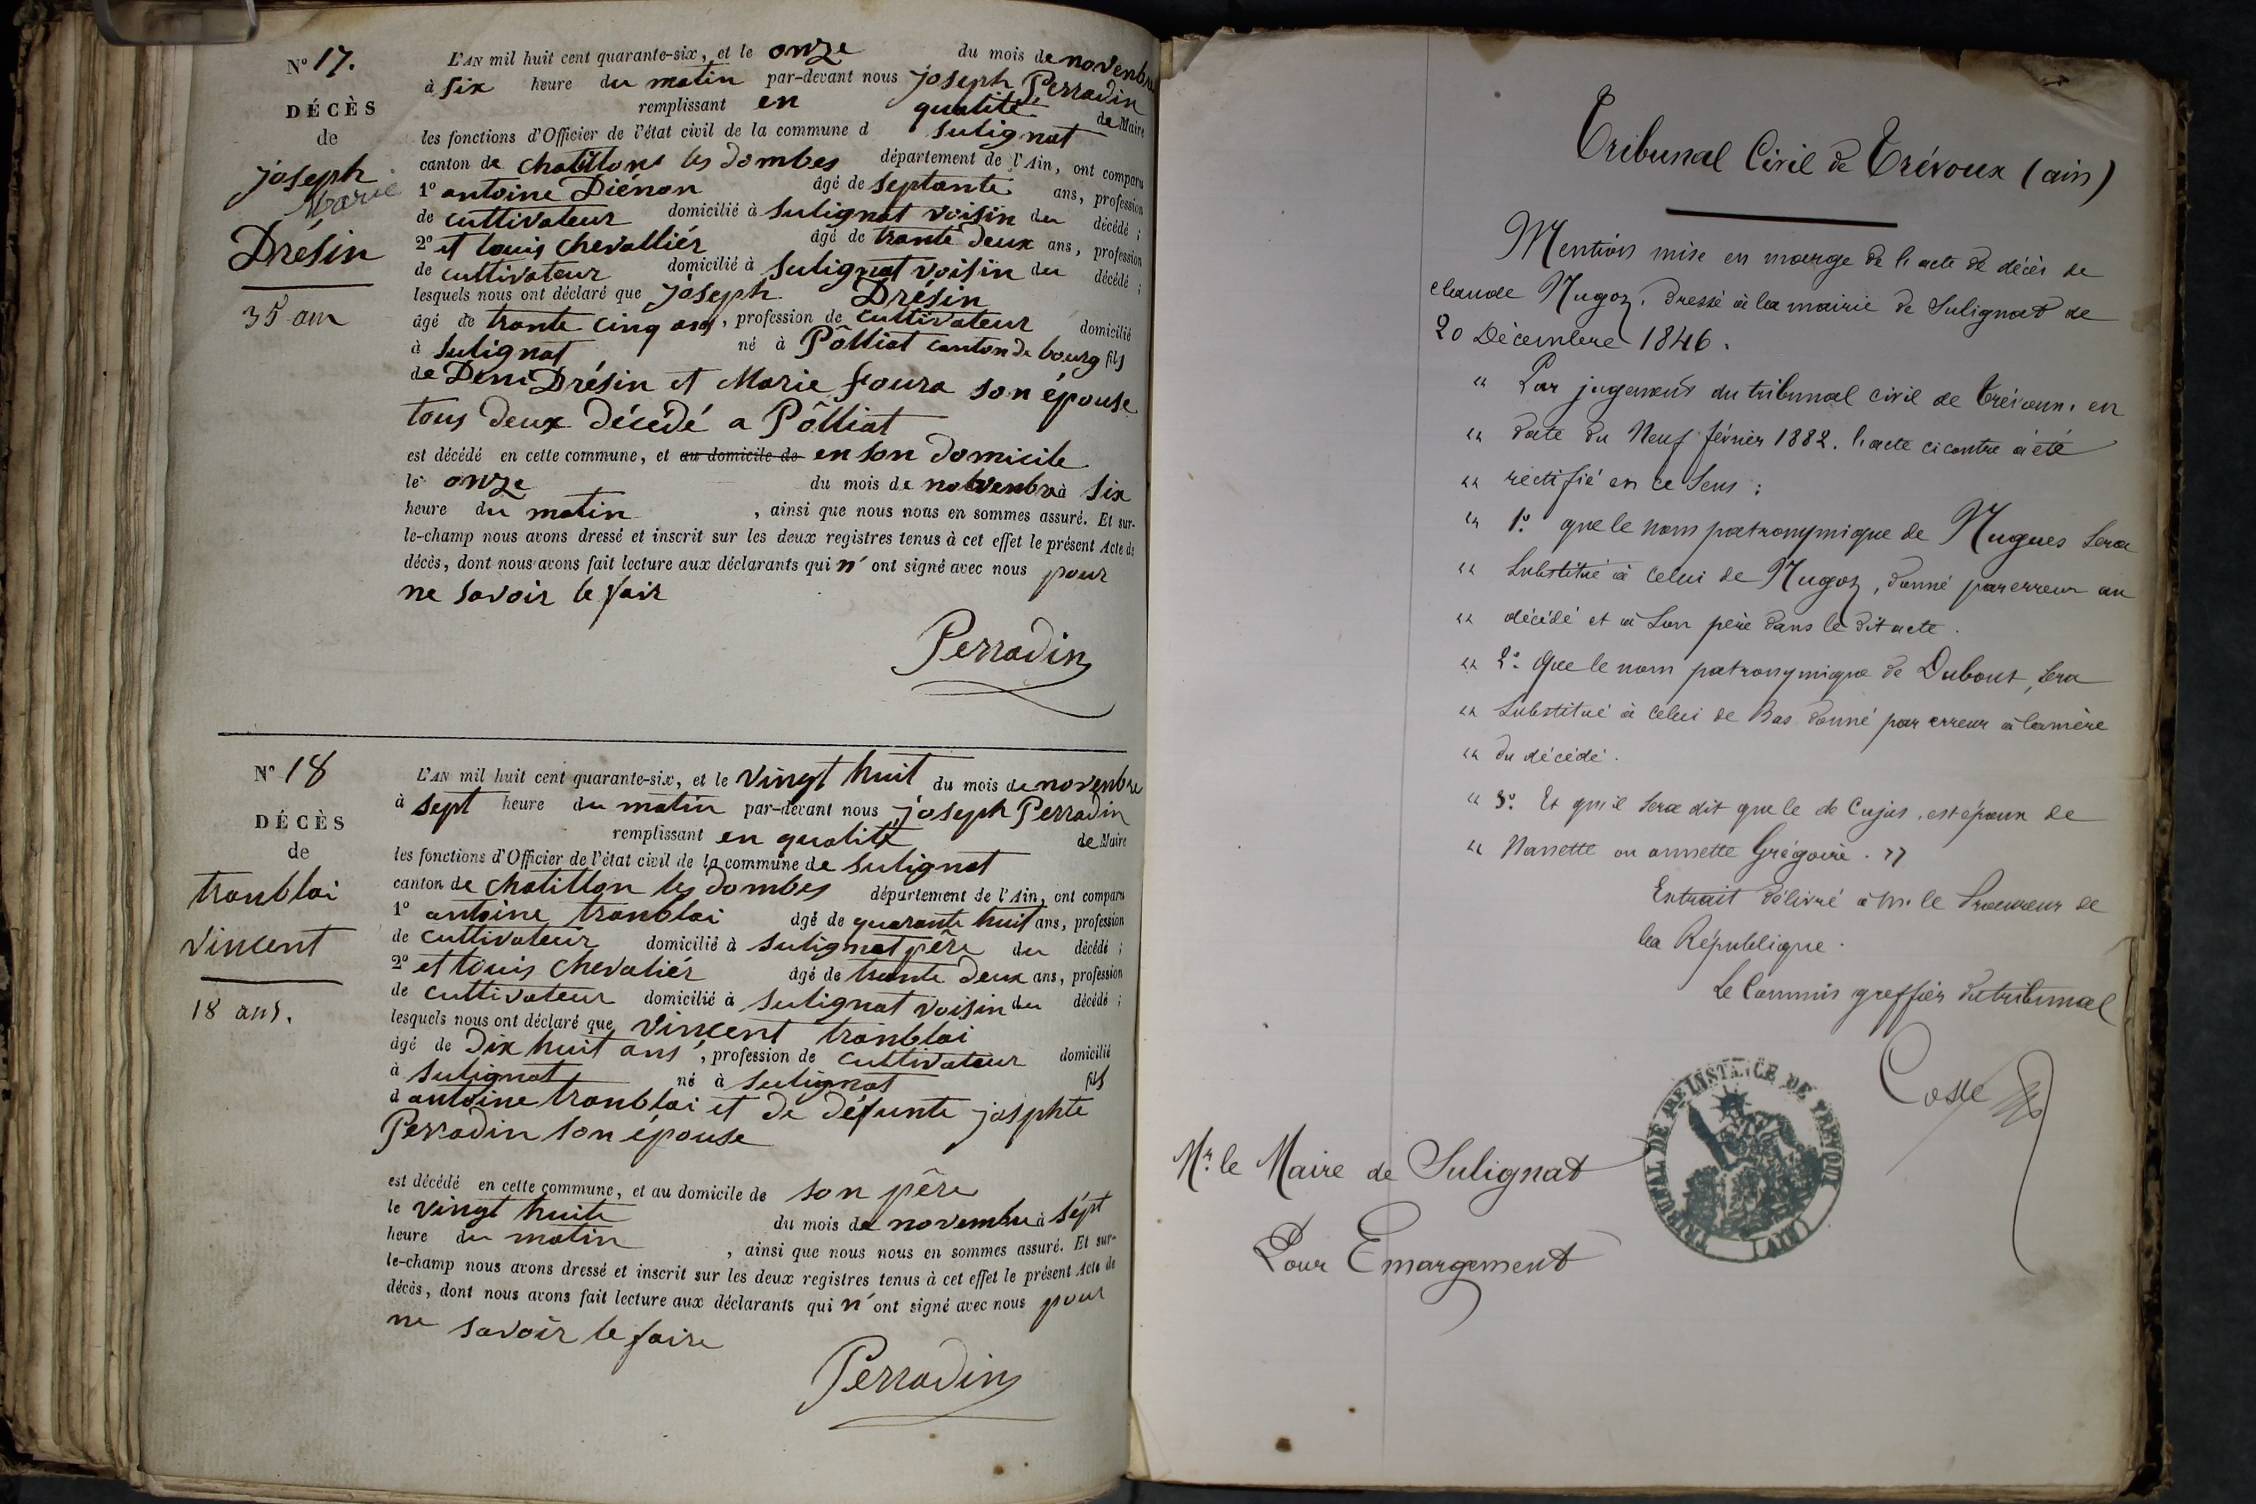 N° 17.
DÉCÈS
de
joseph
Marie
Drésin
35 ans
L'AN mil huit cent quarante-six, et le onze du mois de novembre
à six heure du matin par-devant nous joseph Perradin
remplissant en qualité de Maire
les fonctions d'Officier de l'état civil de la commune d sulignat
canton de chatillons les dombes département de l'Ain, ont comparu
1° antoine Diénon âgé de septante ans, profession
de cultivateur domicilié à sulignat voisin du décédé ;
2° et louis chevalliér âgé de trante deux ans, profession
de cultivateur domicilié à sulignat voisin du décédé ;
lesquels nous ont déclaré que joseph Drésin
âgé de trante cinq ans, profession de cultivateur domicilié
à sulignat né à Pôlliat canton de bourg fils
de Deni Drésin et Marie foura son épouse
tous deux décédé a Pôlliat
est décédé en cette commune, et au domicile de en son domicile
le onze du mois de novenbre à six
heure du matin, ainsi que nous nous en sommes assuré. Et sur-
le-champ nous avons dressé et inscrit sur les deux registres tenus à cet effet le présent Acte de
décès, dont nous avons fait lecture aux déclarants qui n'ont signé avec nous pour
ne savoir le fair
Perradin
N° 18
DÉCÈS
de
tranblai
vincent
18 ans.
L'AN mil huit cent quarante-six, et le vingt huit du mois de novenbre
à sept heure du matin par-devant nous joseph Perradin
remplissant en qualité de Maire
les fonctions d'Officier de l'état civil de la commune de sulignat
canton de chatillon les dombes département de l'Ain, ont comparu
1° antoine tranblai âgé de quarante huit ans, profession
de cultivateur domicilié à sulignat père du décédé ;
2° et louis chevaliér âgé de trante deux ans, profession
de cultivateur domicilié à sulignat voisin du décédé ;
lesquels nous ont déclaré que vincent tranblai
âgé de dix huit ans, profession de cultivateur domicilié
à sulignat né à sulignat fils
d antoine tranblai et de défunte josphte
Perradin son épouse
est décédé en cette commune, et au domicile de son père
le vingt huite du mois de novembre à sépt
heure du matin, ainsi que nous nous en sommes assuré. Et sur-
le-champ nous avons dressé et inscrit sur les deux registres tenus à cet effet le présent Acte de
décès, dont nous avons fait lecture aux déclarants qui n'ont signé avec nous pour
ne savoir le faire
Perradin
Tribunal Civil de Trévoux (ain)
Mention mise en marge de l'acte de décès de
claude Nugoz, dressé à la mairie de Sulignat de
20 Décembre 1846.
" Par jugement du tribunal civil de Trévoux, en
" date du Neuf février 1882. l'acte ci contre a été
" rectifié en ce Sens :
" 1° que le nom patronymique de Nugues sera
" substitué à celui de Nugoz, donné par erreur au
" décédé et à son père dans le dit acte.
" 2° Que le nom patronymique de Dubout, sera
" substitué à celui de Bas donné par erreur à la mère
" du décédé.
" 3° Et qu'il sera dit que le de Cujus, est époux de
" Nanette ou annette Grégoire. "
Extrait délivré à Mr le Procureur de
la République.
Le Commis greffier du tribunal
Mr. le Maire de Sulignat
Pour Emargement
TRIBUNAL DE 1ÈRE INSTANCE DE TRÉVOUX (AIN)